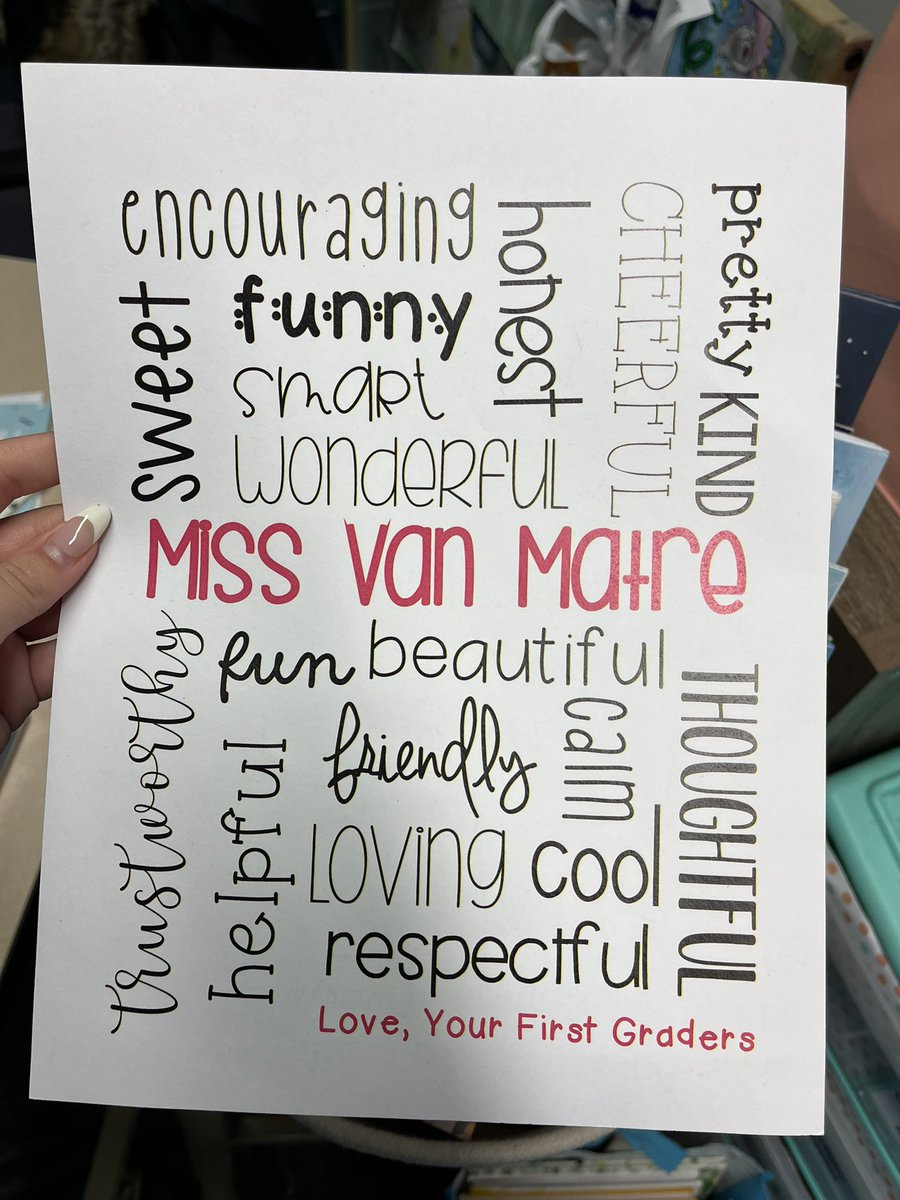 encouraging
honest
CHEERFUL
pretty
KIND
sweet
funny
smart
wonderful
Miss Van Matre
trustworthy
fun
beautiful
THOUGHTFUL
helpful
friendly
calm
Loving
cool
respectful
Love, Your First Graders